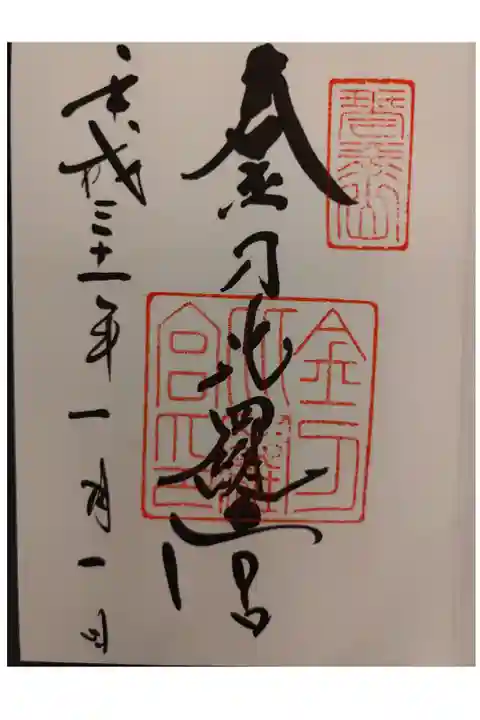 金刀比羅宮
金刀
比羅
宮印
平成三十一年一月一日